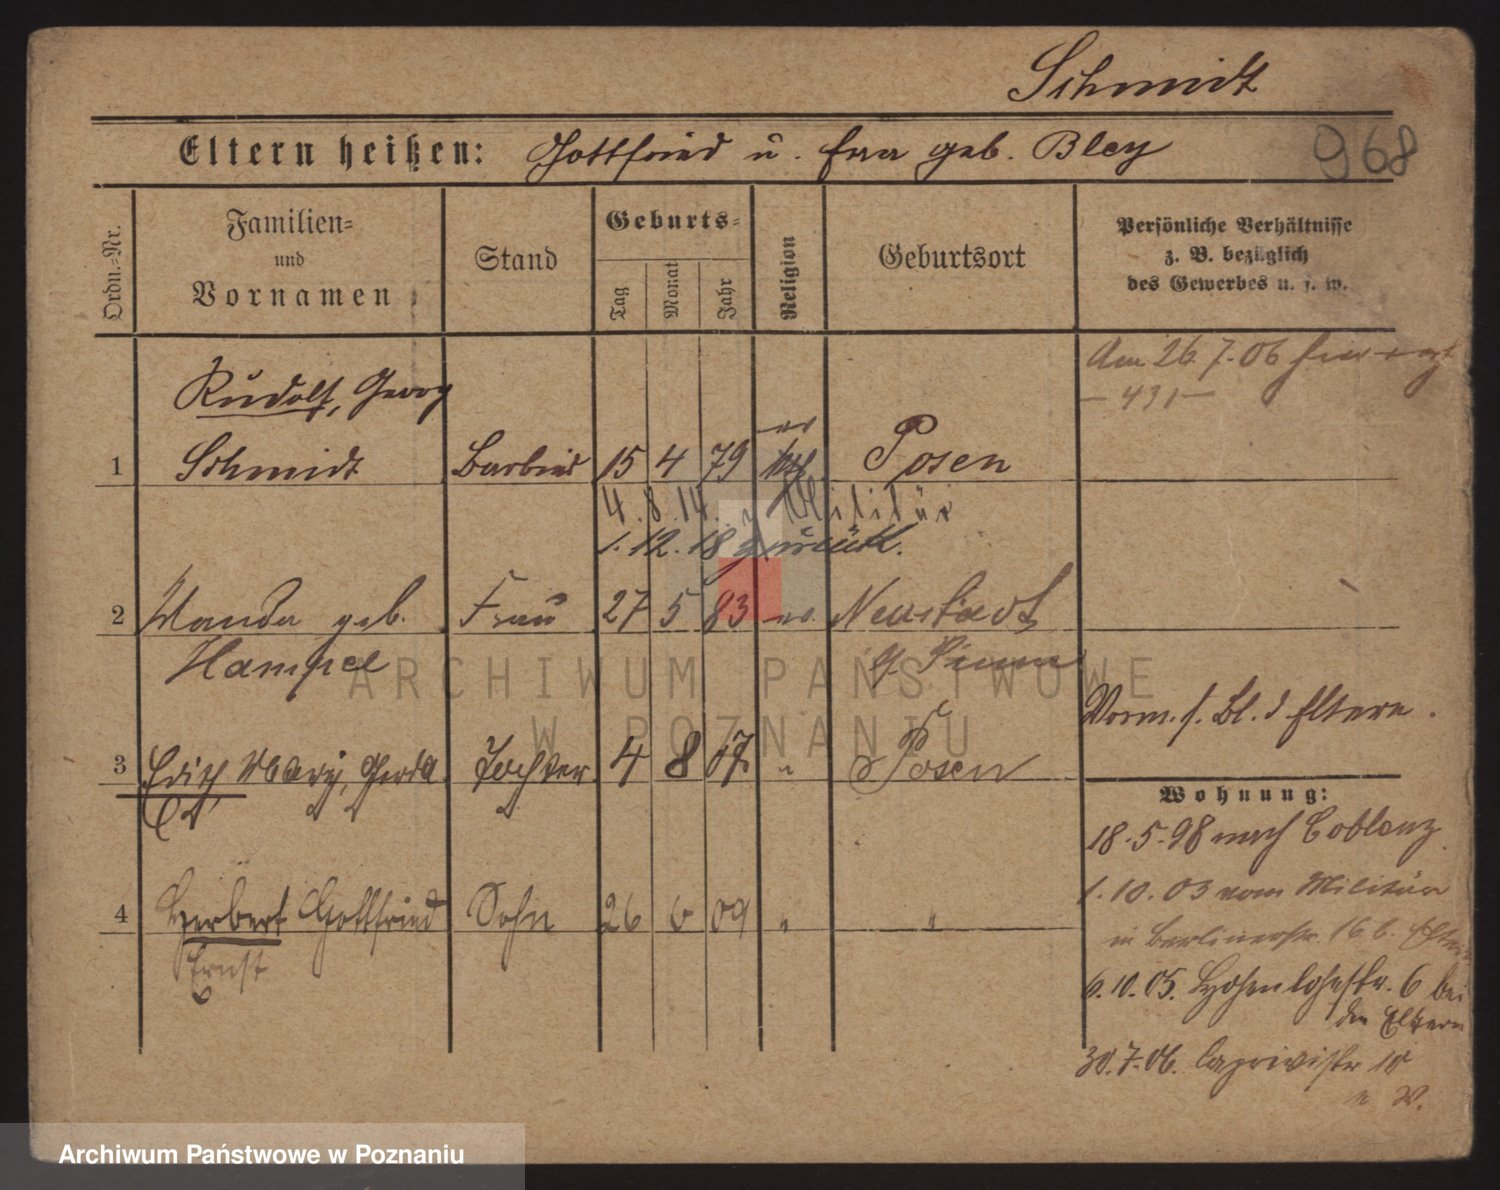 Schmidt
Eltern heißen: Gottfried u. Eva geb. Bley
968
Ordn.-Nr.
Familien-
und
Vornamen
Stand
Geburts-
Tag
Monat
Jahr
Religion
Geburtsort
Persönliche Verhältnisse
z. B. bezüglich
des Gewerbes u. s. w.
Am 26.7.06
— 431 —
Rudolf, Georg
ev
1 Schmidt Barbier 15 4 79 Posen
4. 8. 14. z Militär
1. 12. 18 zurück.
2 Wanda geb. Frau 27 5 83 ev. Neustadt
Hampel b/ Pinne
Vorm. s. Bl. d Eltern.
3 Edith Mary, Gerda Tochter 4 8 07 " Posen
Wohnung:
18.5.98 nach Coblenz
1.10.03 vom Militär
4 Herbert Gottfried Sohn 26 6 09 " "
in Berlinerstr. 16 b. Eltern
Ernst
6.10.05. Hohenlohestr. 6 bei
den Eltern
30.7.06. Caprivistr 10
ARCHIWUM PAŃSTWOWE
W POZNANIU
Archiwum Państwowe w Poznaniu